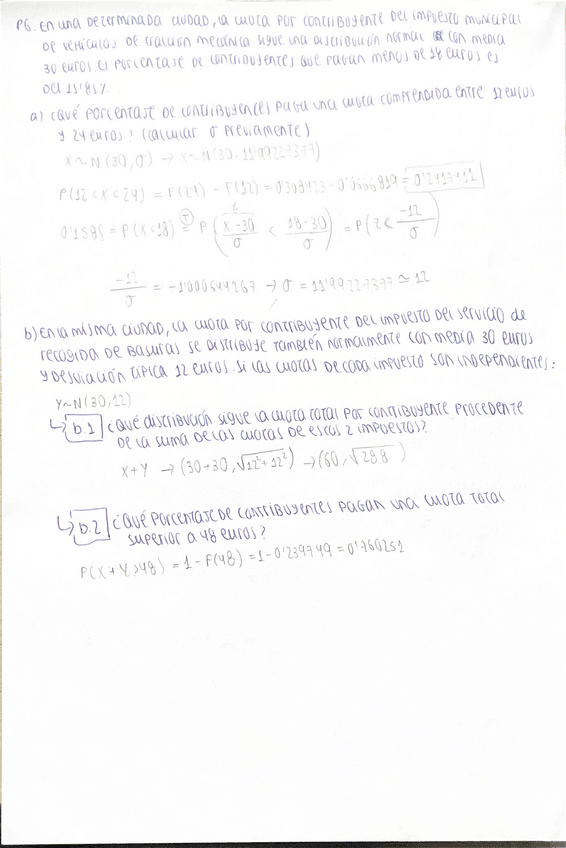 P6. En una determinada ciudad, la cuota por contribuyente del impuesto municipal
de vehículos de tracción mecánica sigue una distribución normal con media
30 euros. El porcentaje de contribuyentes que pagan menos de 18 euros es
del 15'85%.
a) ¿Qué porcentaje de contribuyentes paga una cuota comprendida entre 12 euros
y 24 euros? (calcular σ previamente)
X~N(30,σ) → X~N(30, 11'99227377)
P(12<X<24) = F(24) - F(12) = 0'308423 - 0'0666819 = 0'2417411
0'1585 = P(X<18) =(T) P( (X-30)/σ < (18-30)/σ ) = P(Z< -12/σ )
-12/σ = -1'000644267 → σ = 11'99227377 ≃ 12
b) En la misma ciudad, la cuota por contribuyente del impuesto del servicio de
recogida de basuras se distribuye también normalmente con media 30 euros
y desviación típica 12 euros. Si las cuotas de cada impuesto son independientes:
Y~N(30,12)
b.1 ¿Qué distribución sigue la cuota total por contribuyente procedente
de la suma de las cuotas de estos 2 impuestos?
X+Y → (30+30, √12²+12²) → (60, √288)
b.2 ¿Qué porcentaje de contribuyentes pagan una cuota total
superior a 48 euros?
P(X+Y>48) = 1-F(48) = 1-0'239749 = 0'760251